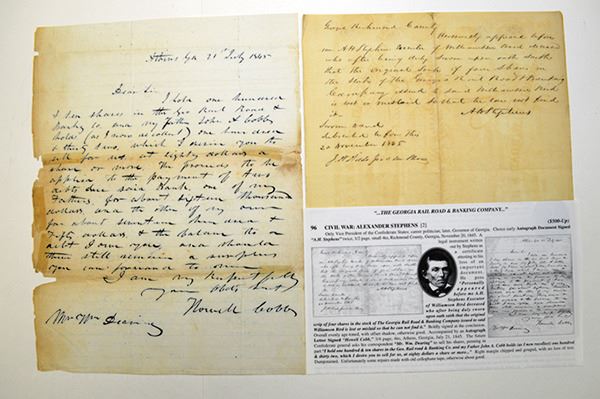 Athens Ga 21st July 1845
Dear Sir I hold one hundred
& ten shares in the Geo Rail Road &
Banking Co and my father John A Cobb
holds (as I now recollect) one hundred
& thirty two, which I desire you to
sell for us at eighty dollars a
share or more. The proceeds to be
applied to the payment of two
debts due said Bank, one of my
Fathers, for about
dollars and the other of my own
for about seventeen hundred &
eighty dollars & the balance to a
debt I owe you, and should
there still remain a surplus
you can forward to me.
I am very respectfully
your obdt svt
Howell Cobb
Mr Wm Dearing
George Richmond County
Personally appeared before
me A H Stephens Executor of Williamson Bird deceased
who after being duly sworn upon oath saith
that the original scrip of four shares in
the stock of the Georgia Rail Road & Banking
Company issued to said Williamson Bird
is lost or mislaid so that he can not find
it.
A H Stephens
Sworn to and
subscribed before this
20 November 1845
"...THE GEORGIA RAIL ROAD & BANKING COMPANY..."
96 CIVIL WAR: ALEXANDER STEPHENS [2] ($500-Up)
Only Vice President of the Confederate States, career politician; later, Governor of Georgia. Choice early Autograph Document Signed
"A.H. Stephens" twice, 1/2 page, small 4to, Richmond County, Georgia, November 20, 1845. A
legal instrument written
out by Stephens in
meeting to his
loss of an
important
document.
He states:
"Personally
appeared
before me A H
Stephens Executor
of Williamson Bird deceased
who after being duly sworn
upon oath saith that the original
scrip of four shares in the stock of The Georgia Rail Road & Banking Company issued to said
Williamson Bird is lost or mislaid so that he can not find it." Boldly signed at the conclusion.
Overall evenly age toned, with offset shadow, otherwise good. Accompanied by an Autograph
Letter Signed "Howell Cobb," 3/4 page, 4to, Athens, Georgia, July 21, 1845. The future
Confederate general asks his correspondent "Mr. Wm. Dearing" to sell his shares, penning in
part "I hold one hundred & ten shares in the Geo. Rail road & Banking Co. and my Father John A. Cobb holds (as I now recollect) one hundred
& thirty two, which I desire you to sell for us, at eighty dollars a share or more..." Right margin chipped and gouged, with no loss of text.
Dampstained. Unfortunately some repairs made with old cellophane tape, otherwise about good.